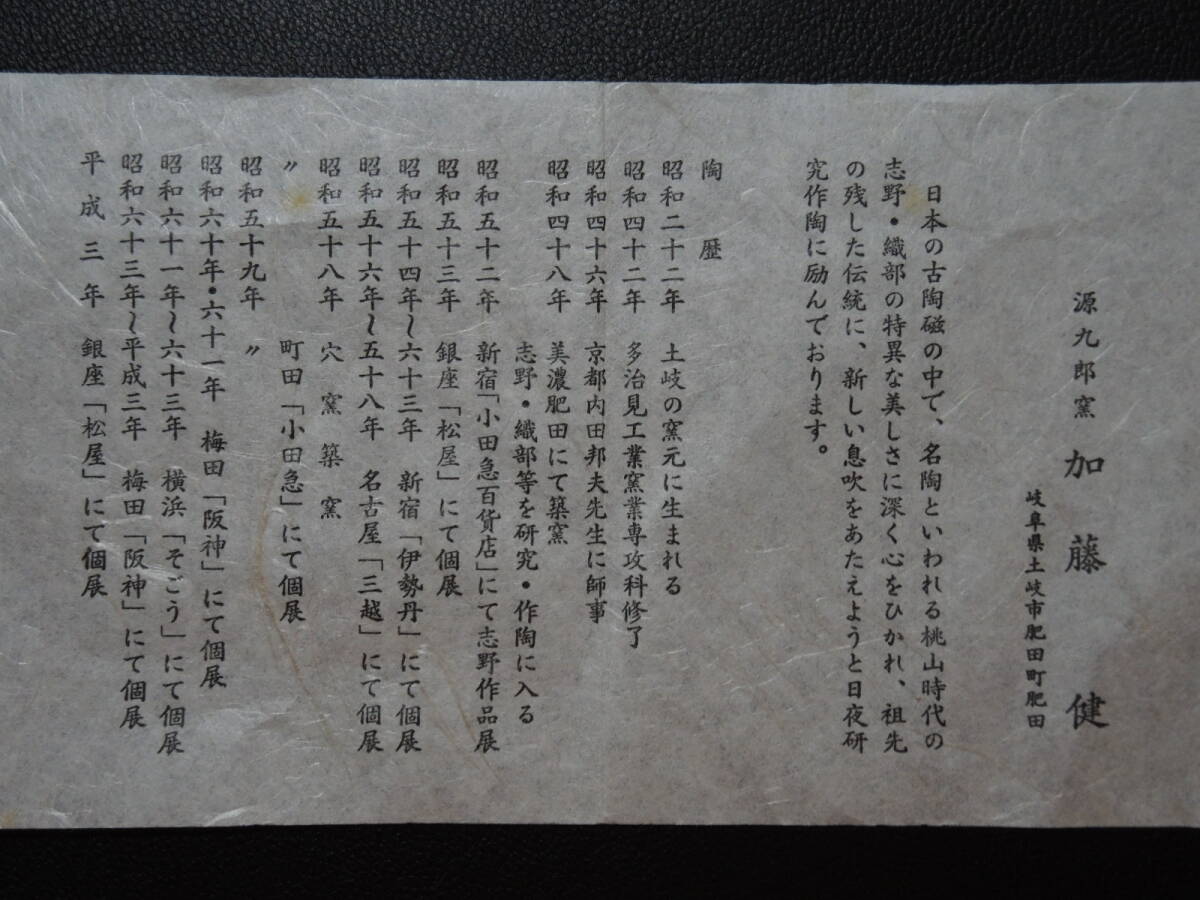 源九郎窯 加藤 健
岐阜県土岐市肥田町肥田
日本の古陶磁の中で、名陶といわれる桃山時代の
志野・織部の特異な美しさに深く心をひかれ、祖先
の残した伝統に、新しい息吹をあたえようと日夜研
究作陶に励んでおります。
陶 歴
昭和二十二年 土岐の窯元に生まれる
昭和四十二年 多治見工業窯業専攻科修了
昭和四十六年 京都内田邦夫先生に師事
昭和四十八年 美濃肥田にて築窯
志野・織部等を研究・作陶に入る
昭和五十二年 新宿「小田急百貨店」にて志野作品展
昭和五十三年 銀座「松屋」にて個展
昭和五十四年~六十三年 新宿「伊勢丹」にて個展
昭和五十六年~五十八年 名古屋「三越」にて個展
昭和五十八年 穴窯築窯
〃 町田「小田急」にて個展
昭和五十九年 〃
昭和六十年・六十一年 梅田「阪神」にて個展
昭和六十一年~六十三年 横浜「そごう」にて個展
昭和六十三年~平成三年 梅田「阪神」にて個展
平成三年 銀座「松屋」にて個展